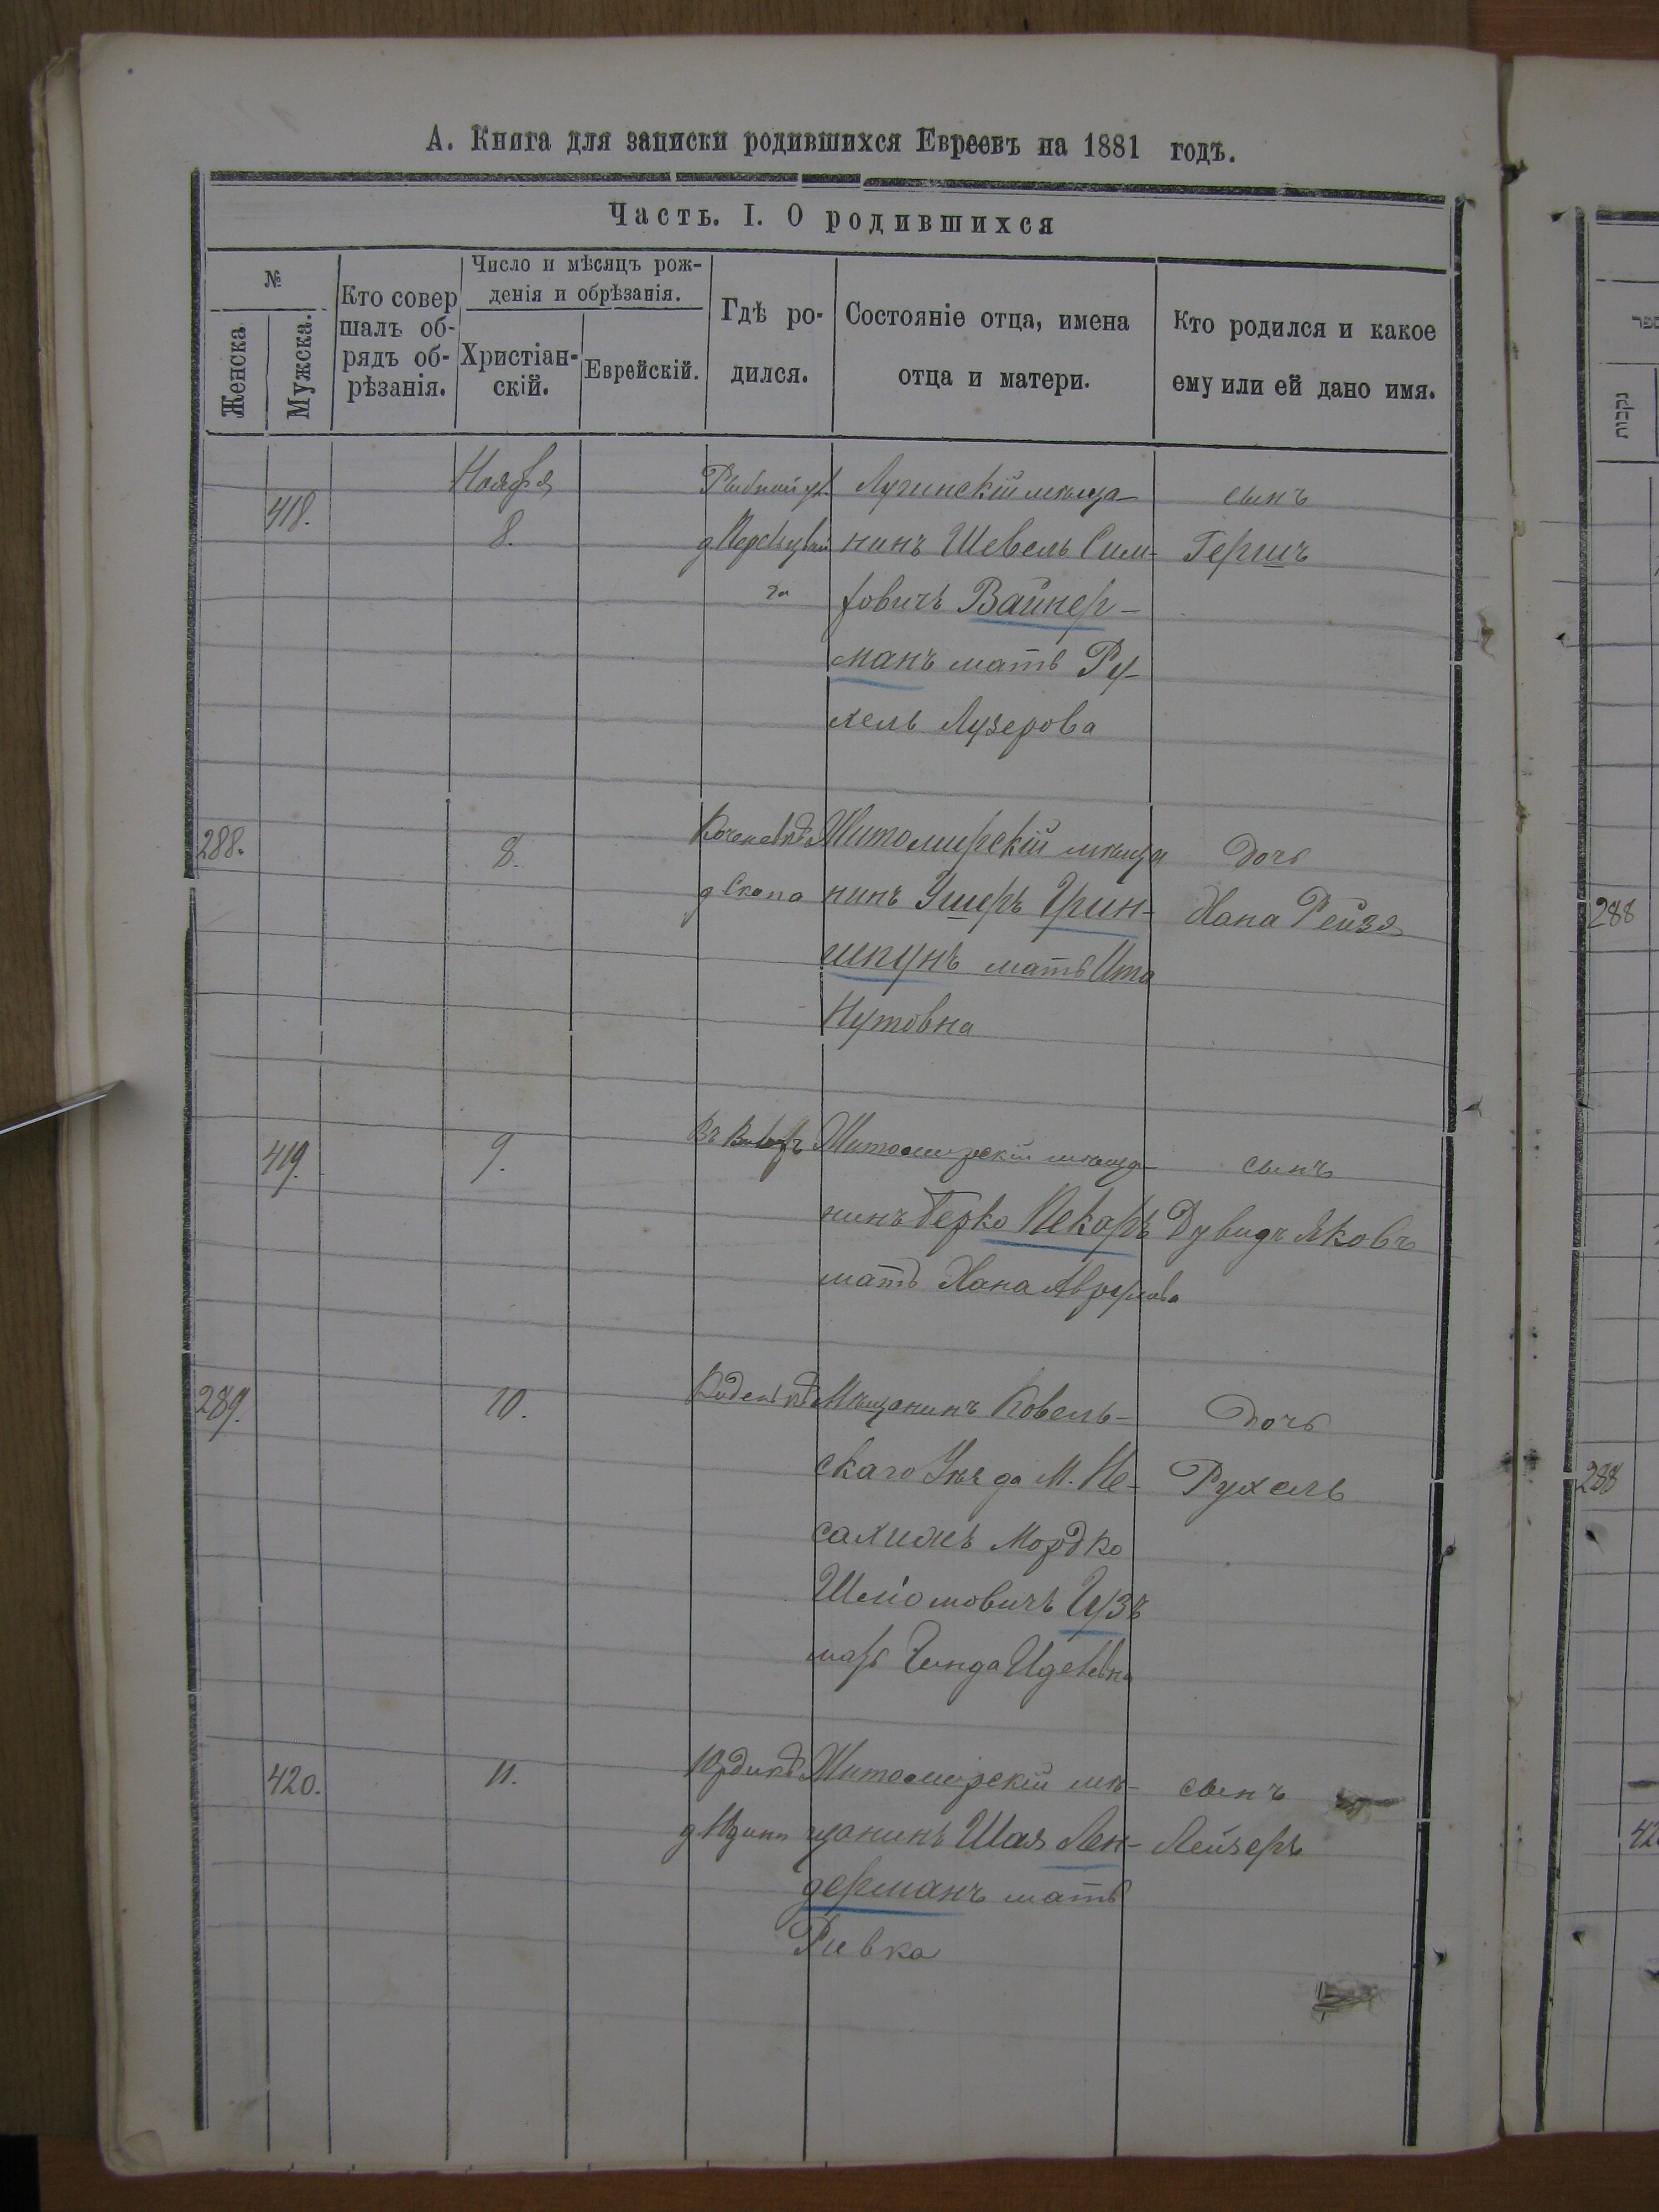 А. Книга для записки родившихся Евреевъ на 1881 годъ.
Часть. I. О родившихся
№
Женска
Мужска.
Кто совер
шалъ об-
рядъ об-
рѣзанія.
Число и мѣсяцъ рож-
денія и обрѣзанія.
Христіан-
скій.
Еврейскій.
Гдѣ ро-
дился.
Состояніе отца, имена
отца и матери.
Кто родился и какое
ему или ей дано имя.
418.
Ноября
8.
Лугинскій мѣща-
нинъ Шевель Сим-
ховичъ Вайнер-
манъ мать Ру-
хель Лузерова
сынъ
Гершъ
288.
8.
Житомирскій мѣща
нинъ Ушеръ Грин-
шпунъ мать Ита
Нутовна
дочь
Хана Рейзя
419.
9.
Въ
Житомирскій мѣща-
нинъ Берко Пекаръ
мать Хана Аврумова
сынъ
Дувидъ Яковъ
289.
10.
Мѣщанинъ Ковель-
скаго Уѣзда М. Не-
сахижъ Мордко
Шліомовичъ Гузъ
Гинда
дочь
Рухель
420.
11.
Житомирскій мѣ-
щанинъ Шая Лен-
дерманъ мать
Ривка
сынъ
Лейзеръ
ספר
נקבות
288
288
42